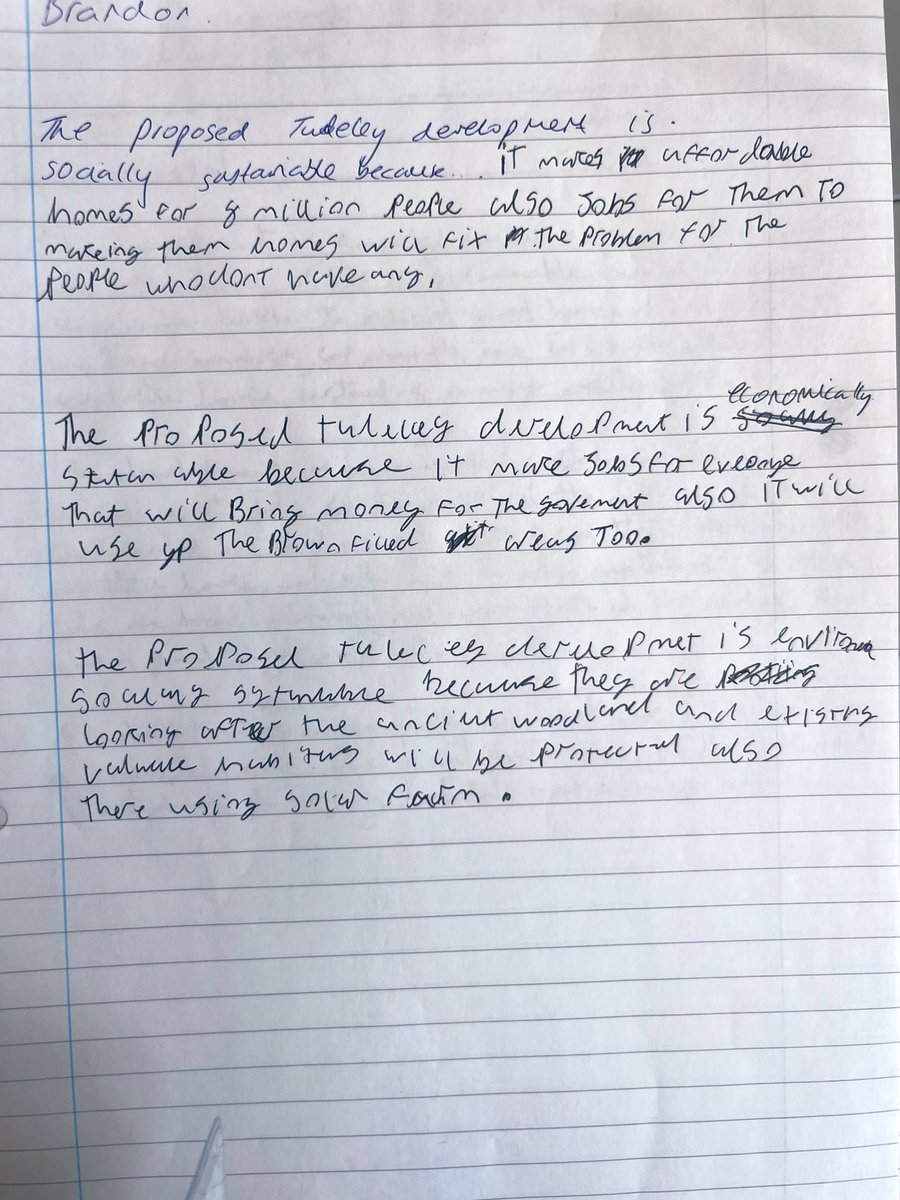 Brandon.
The proposed Tudeley development is.
socially sustainable because... it makes affordable
homes for 8 million People also Jobs for Them To
makeing them homes will fix the Problem for The
People who dont have any.
economically
The ProPosed tuleley development is
because it make Jobs for
That will Bring money For The goverment also iT will
use up The Brown Ficled areas Too.
the ProPosed is
because they are
looking after the ancint woodland and existing
habitas will be Protected also
there using solar Farm.